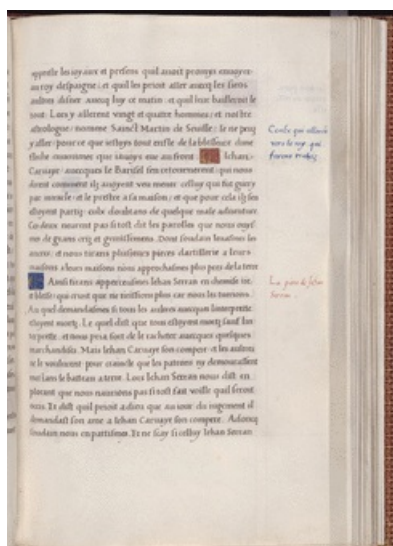 appreste les joyaux et presens quil avoit promys envoyer
au roy despaigne: et quil les prioit aller avecq les siens
aultres disner avecq luy ce matin: et quil leur bailleroit le
tout. Lors y allerent vingt et quatre hommes: et nostre
astrologue: nomme Sainct Martin de Seville: Je ne peuz
y aller: pour ce que jestoys tout enfle de la blesseure dune
flesche au front. Jehan
Carvaye: avecques le Barisel sen retournerent: qui nous
dirent comment ilz avoyent veu mener celluy qui fut guery
par miracle: et le prestre a sa maison: et que pour cela ilz sen
estoyent partiz: eulx doubtans de quelque male adventure.
Ces deux neurent pas si tost dit les paroles que nous ouys
mes de grans criz et gemissemens. Dont soudain levasmes les
ancres: et nous tirans plusieurs pieces dartillerie a leurs
maisons nous approchasmes plus pres de la terre
Ainsi tirans apperceusmes Jehan Serran en chemise lie
et blesse: qui crioit que ne tirissions plus car nous les tuerions.
Au quel demandasmes si tous les aultres avecques linterprete
estoyent mortz. Le quel dist que tous estoyent mortz sauf lin
terprete. et nous pria fort de le rachater avecques quelques
marchandises. Mais Jehan Carvaye son compere: et les aultres
ne le voulurent pour craincte que les patrons ny demourassent
Lors Jehan Serran nous dist en
plorant que nous naurions pas si tost fait voille quil seroit
occis. Et dist quil prioit a dieu que au jour du jugement il
demandast son ame a Jehan Carvaye son compere. Adoncq
soudain nous en partismes. Et ne scay si celluy Jehan Serran
Ceulx qui allerent
vers le roy. qui
furent
Jehan
Serran.